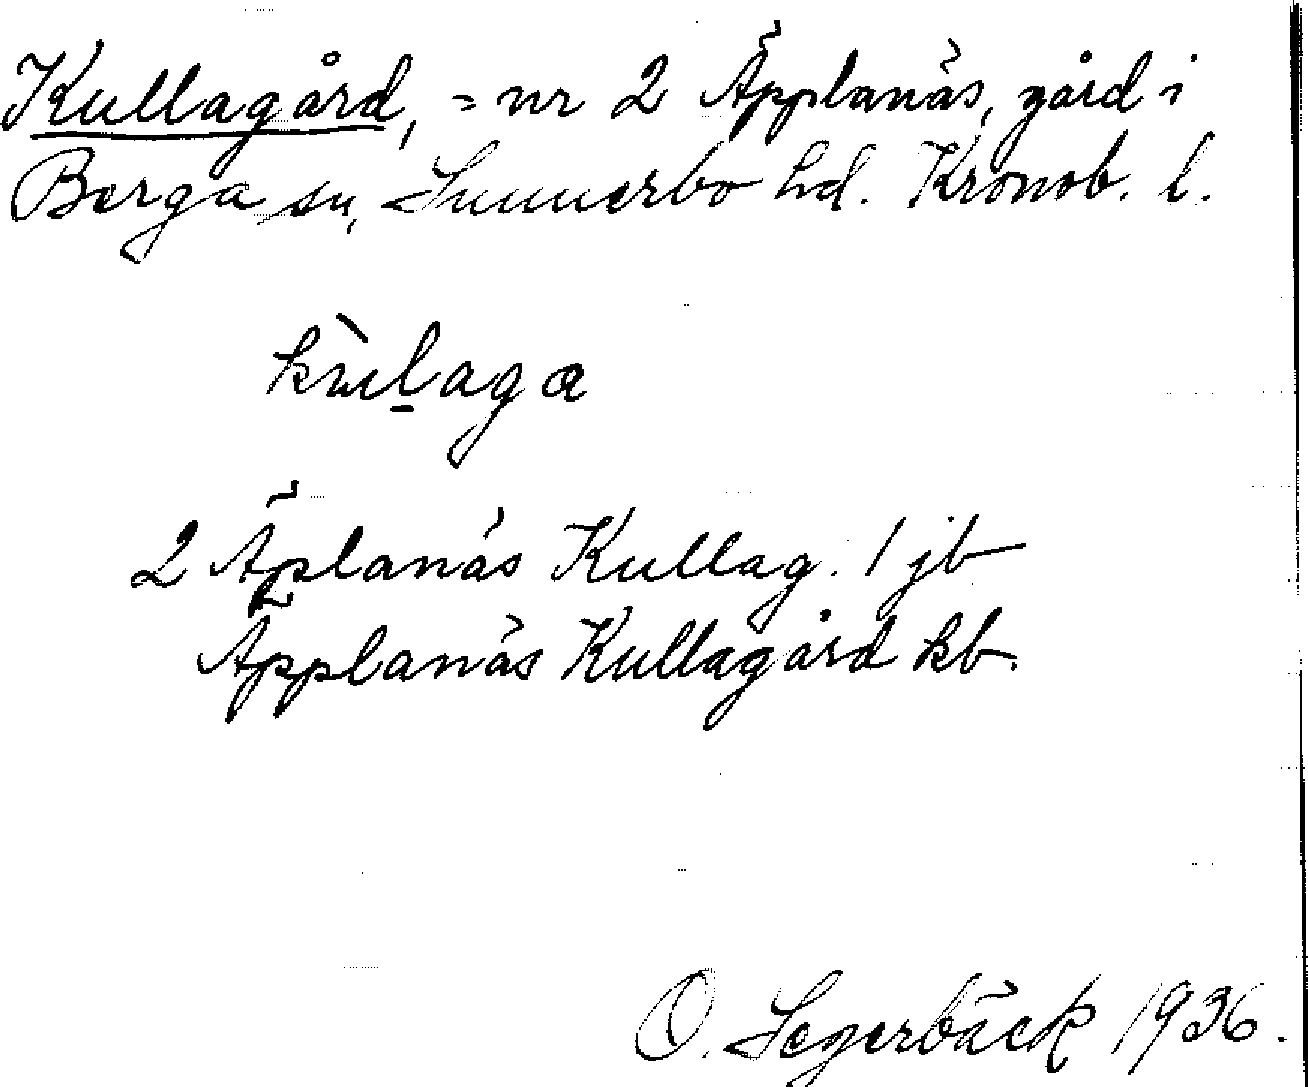 Kullagård, = nr 2 Äpplanäs, gård i
Berga sn, Sunnerbo hd. Kronob. l.
kùl̲aga
2 Äplanäs Kullag. 1 jb
Äpplanäs Kullagård kb.
O. Segerbäck 1936.